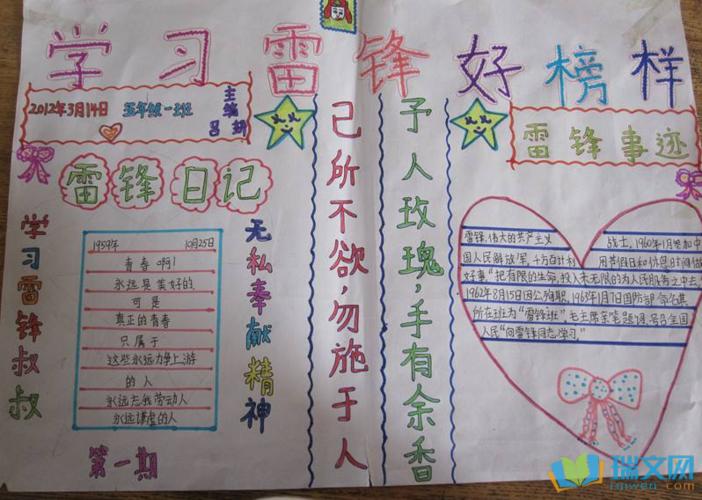 学习雷锋好榜样
2012年3月14日 五年级一班
主编
吕
雷锋日记
学习雷锋叔叔
1959年 10月25日
青春啊!
永远是美好的
可是
真正的青春
只属于
这些永远力争上游
的人
永远忘我劳动人
永远谦虚的人
无私奉献精神
第一期
己所不欲,勿施于人
予人玫瑰,手有余香
雷锋事迹
雷锋,伟大的共产主义 战士,1960年1月参加中
国人民解放军,
好事"把有限的生命,投入未无限的为人民服务之中去,
1962年8月15日因公殉职,1963年1月7日国防部命名其
所在班为"雷锋班"毛主席亲笔题词,号召全国
人民"向雷锋同志学习."
瑞文网
ruiwen.com